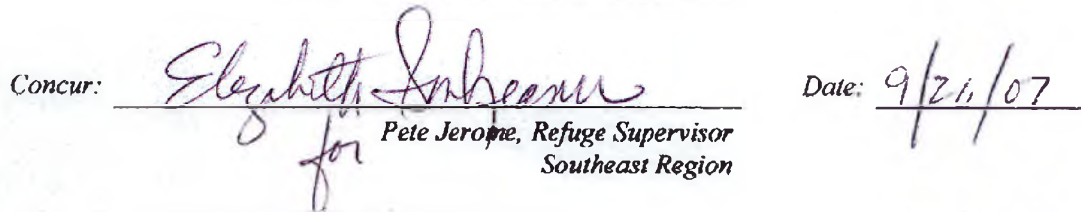 Concur: Elizabeth Date: 9/21/07
for Pete Jerome, Refuge Supervisor
Southeast Region